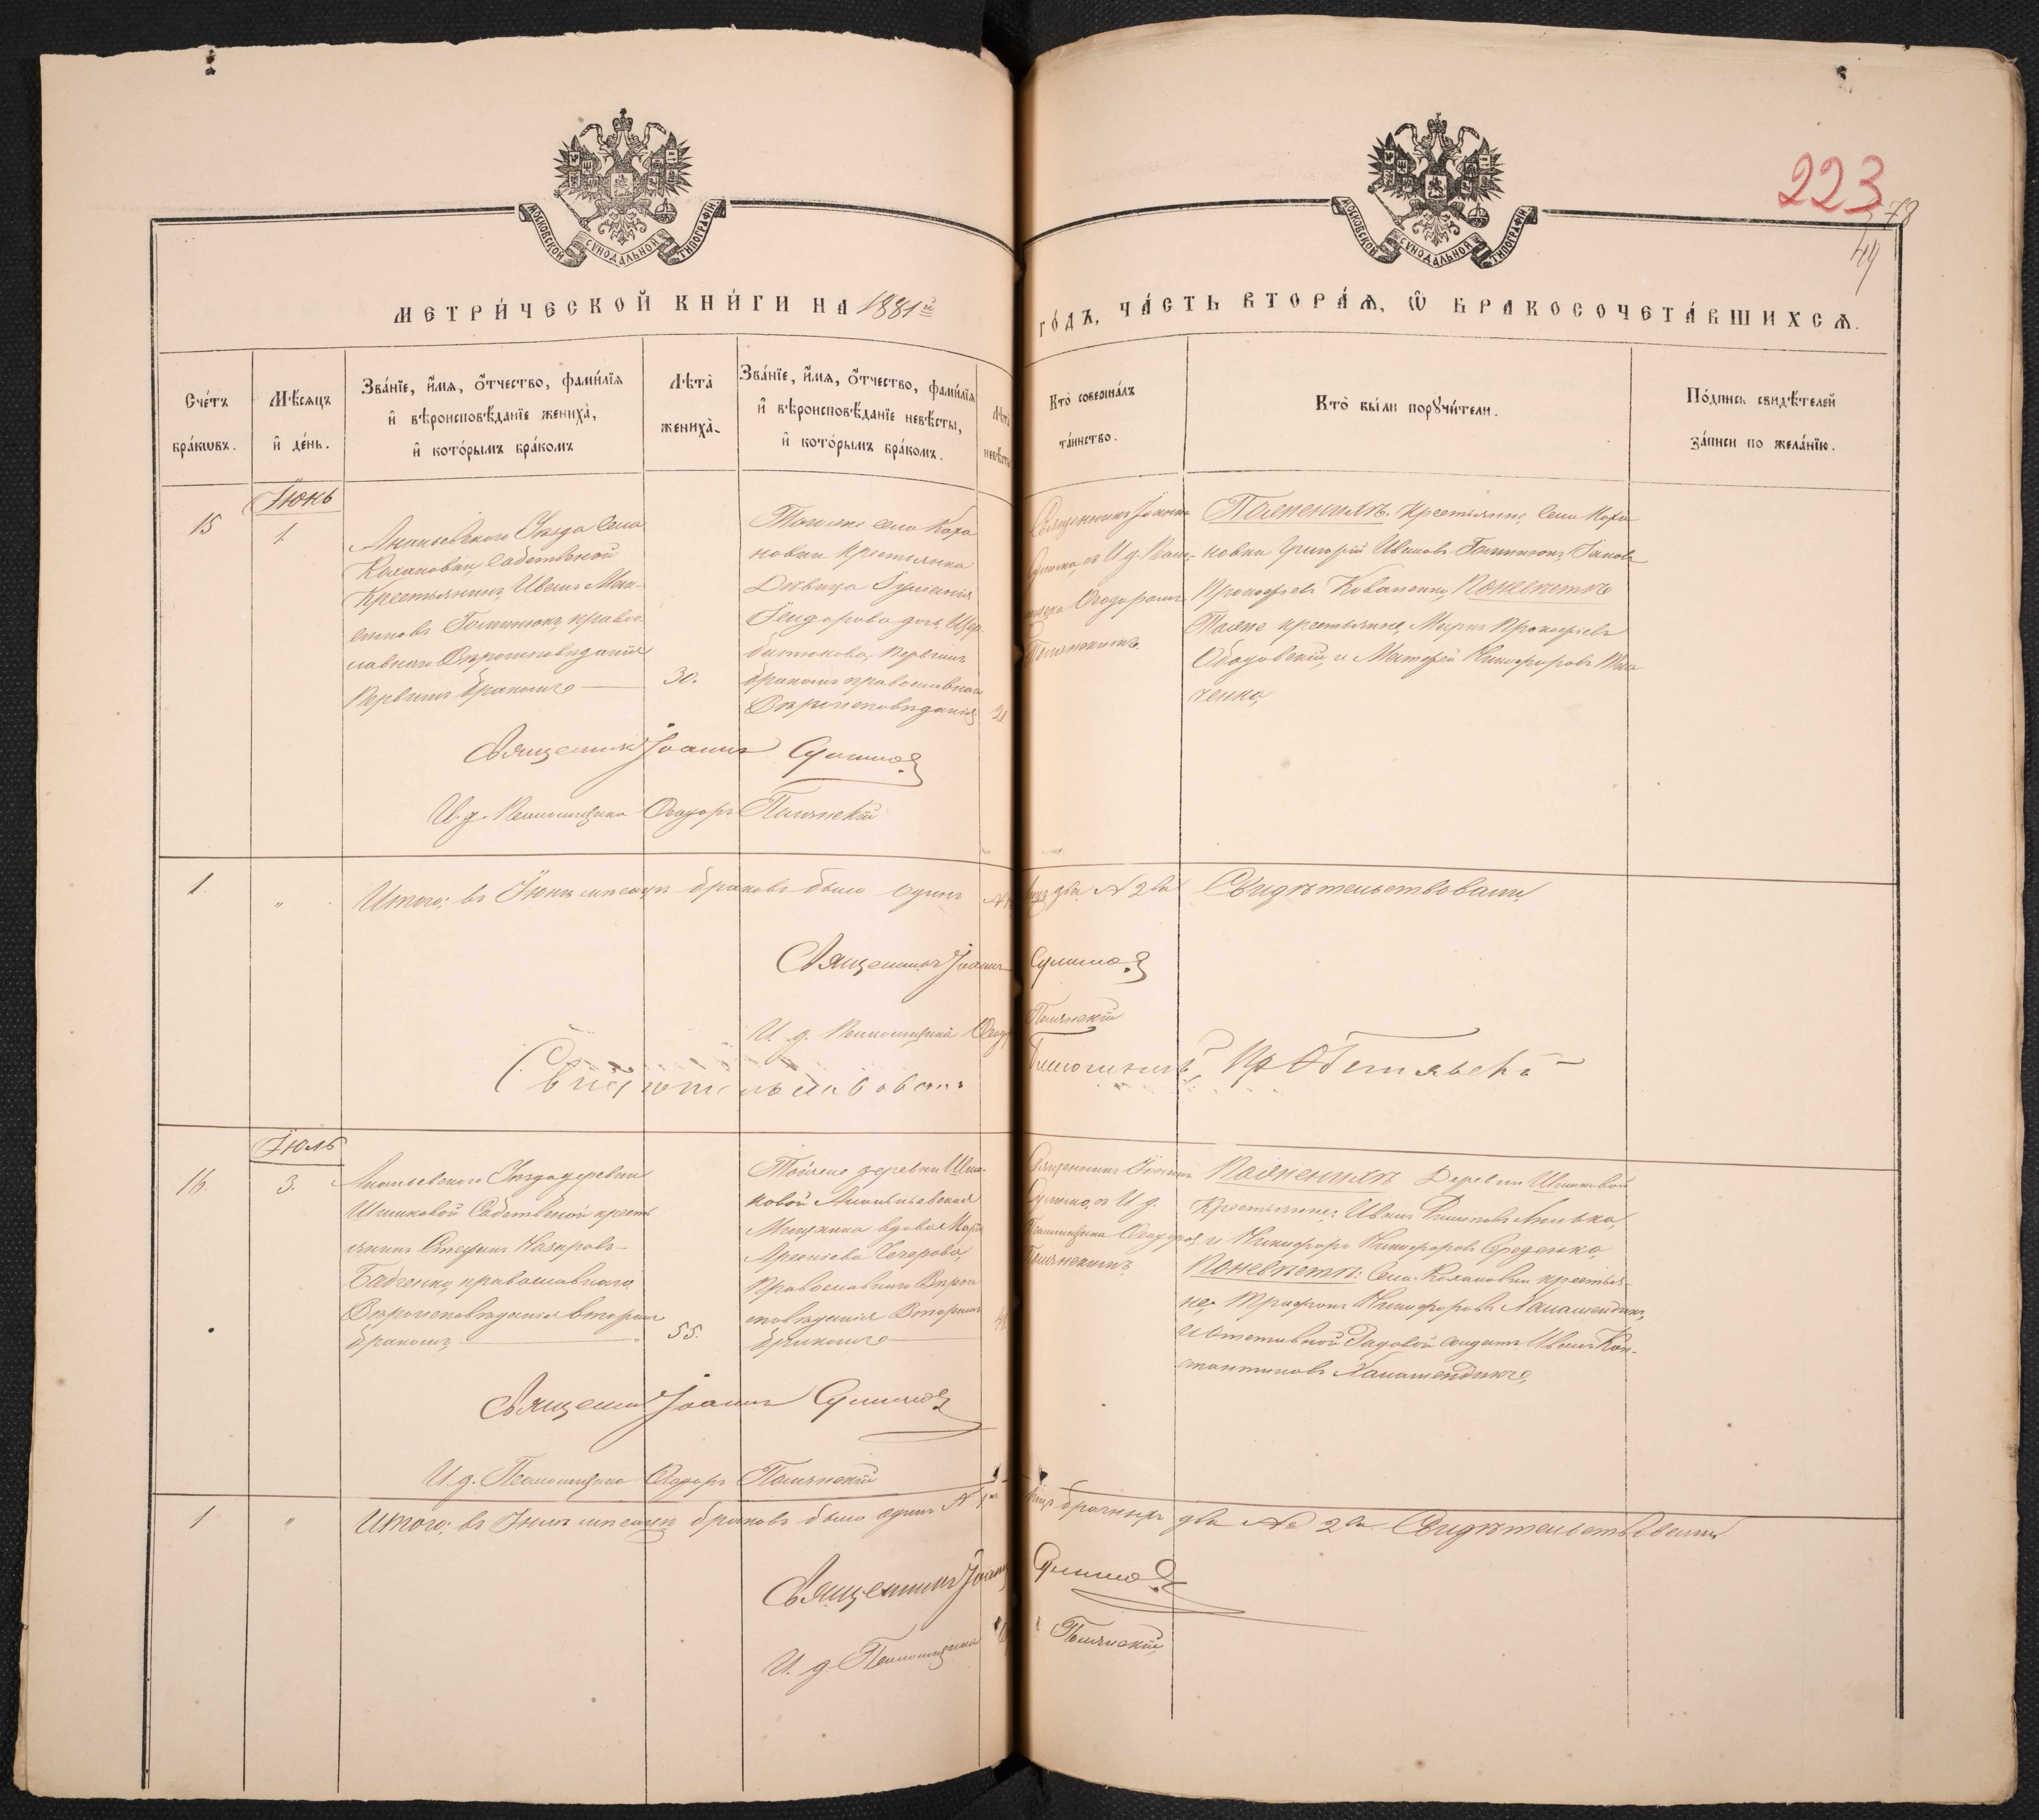 МОСКОВСКОЙ СѴНОДАЛЬНОЙ ТИПОГРАФІИ.
МОСКОВСКОЙ СѴНОДАЛЬНОЙ ТИПОГРАФІИ.
223
78
49
МЕТРИ́ЧЕСКОЙ КНИ́ГИ НА 1881й
ГО́ДЪ, ЧА́СТЬ ВТОРА́Ѧ, Ѽ БРАКОСОЧЕТА́ВШИХСѦ.
Сче́тъ бра́кѡвъ.
Мѣ́сѧцъ и҆ де́нь.
Зва́нїе, и҆́мѧ, ѻ҆́тчество, фами́лїѧ и҆ вѣроисповѣ́данїе жениха̀, и҆ кото́рымъ бра́комъ
Лѣта̀ жениха̀.
Зва́нїе, и҆́мѧ, ѻ҆́тчество, фами́лїѧ и҆ вѣроисповѣ́данїе невѣ́сты, и҆ кото́рымъ бра́комъ.
Лѣта̀ невѣ́сты
Кто̀ соверша́лъ та́инство.
Кто̀ бы́ли порꙋчи́тели.
По́дпись свидѣ́телей за́писи по жела́нїю.
Іюнь
15
1.
Ананьевскаго Уѣзда Села
Кохановки, Собственой
Крестьянинъ, Иванъ Мак-
симовъ православнаго
Вѣроисповѣданія
Первымъ бракомъ
30.
Тогоже села Коха
новки крестьянка
Дѣвица
Ѳеодорова дочь
первымъ
бракомъ православнаго
Вѣроисповѣданія
21
Священникъ Іоаннъ
Сулима, съ И. д. Псалом-
щика Ѳеодоромъ
Полянскимъ.
По женихѣ. Крестьяне, села Коха
новки Григорій Ивановъ Яковъ
Прокофіевъ Коваленко, По невѣстѣ
Тоже крестьяне, Маркъ Прокофіевъ
Ободовскій, и Матфей Никифоровъ
ченко,
Священникъ Іоаннъ Сулима
И. д. Псаломщика Ѳеодоръ Полянскій
1.
"
Итого: въ Іюнѣ мѣсяцѣ браковъ было одинъ № 1
лицъ два № 2ва Свидѣтельствовали,
Священникъ Іоаннъ Сулима
И. д. Псаломщика Ѳеодоръ Полянскій
Свидѣтельствовалъ
Іюль
16.
3.
Ананьевскаго Уѣзда деревни
Шишковой Собственой кресть
янинъ Стефанъ Назаровъ
Бабченко, православнаго
Вѣроисповѣданія вторымъ
бракомъ
55.
Тойже деревни Шиш-
ковой Ананьевская
Мещанка вдова Марія
Арсеніева Чечерова,
Православнаго Вѣрои
сповѣданія Вторымъ
бракомъ
Священникъ Іоаннъ
Сулима, съ И. д.
Псаломщика Ѳеодоромъ
Полянскимъ
По женихѣ Деревни Шишковой
Крестьяне: Иванъ Филиповъ
и Никифоръ Никифоровъ Середенко,
По невѣстѣ: Села Кохановки крестья-
не Трифонъ Никифоровъ
и отставной Рядовой солдатъ Иванъ Кон-
стантиновъ
Священникъ Іоаннъ Сулима
И. д. Псаломщика Ѳеодоръ Полянскій
1
"
Итого: въ Іюлѣ мѣсяцѣ браковъ было одинъ № 1
лицъ брачныхъ два № 2ва Свидѣтельствовали
Священникъ Іоаннъ Сулима
И. д. Псаломщика Полянскій,